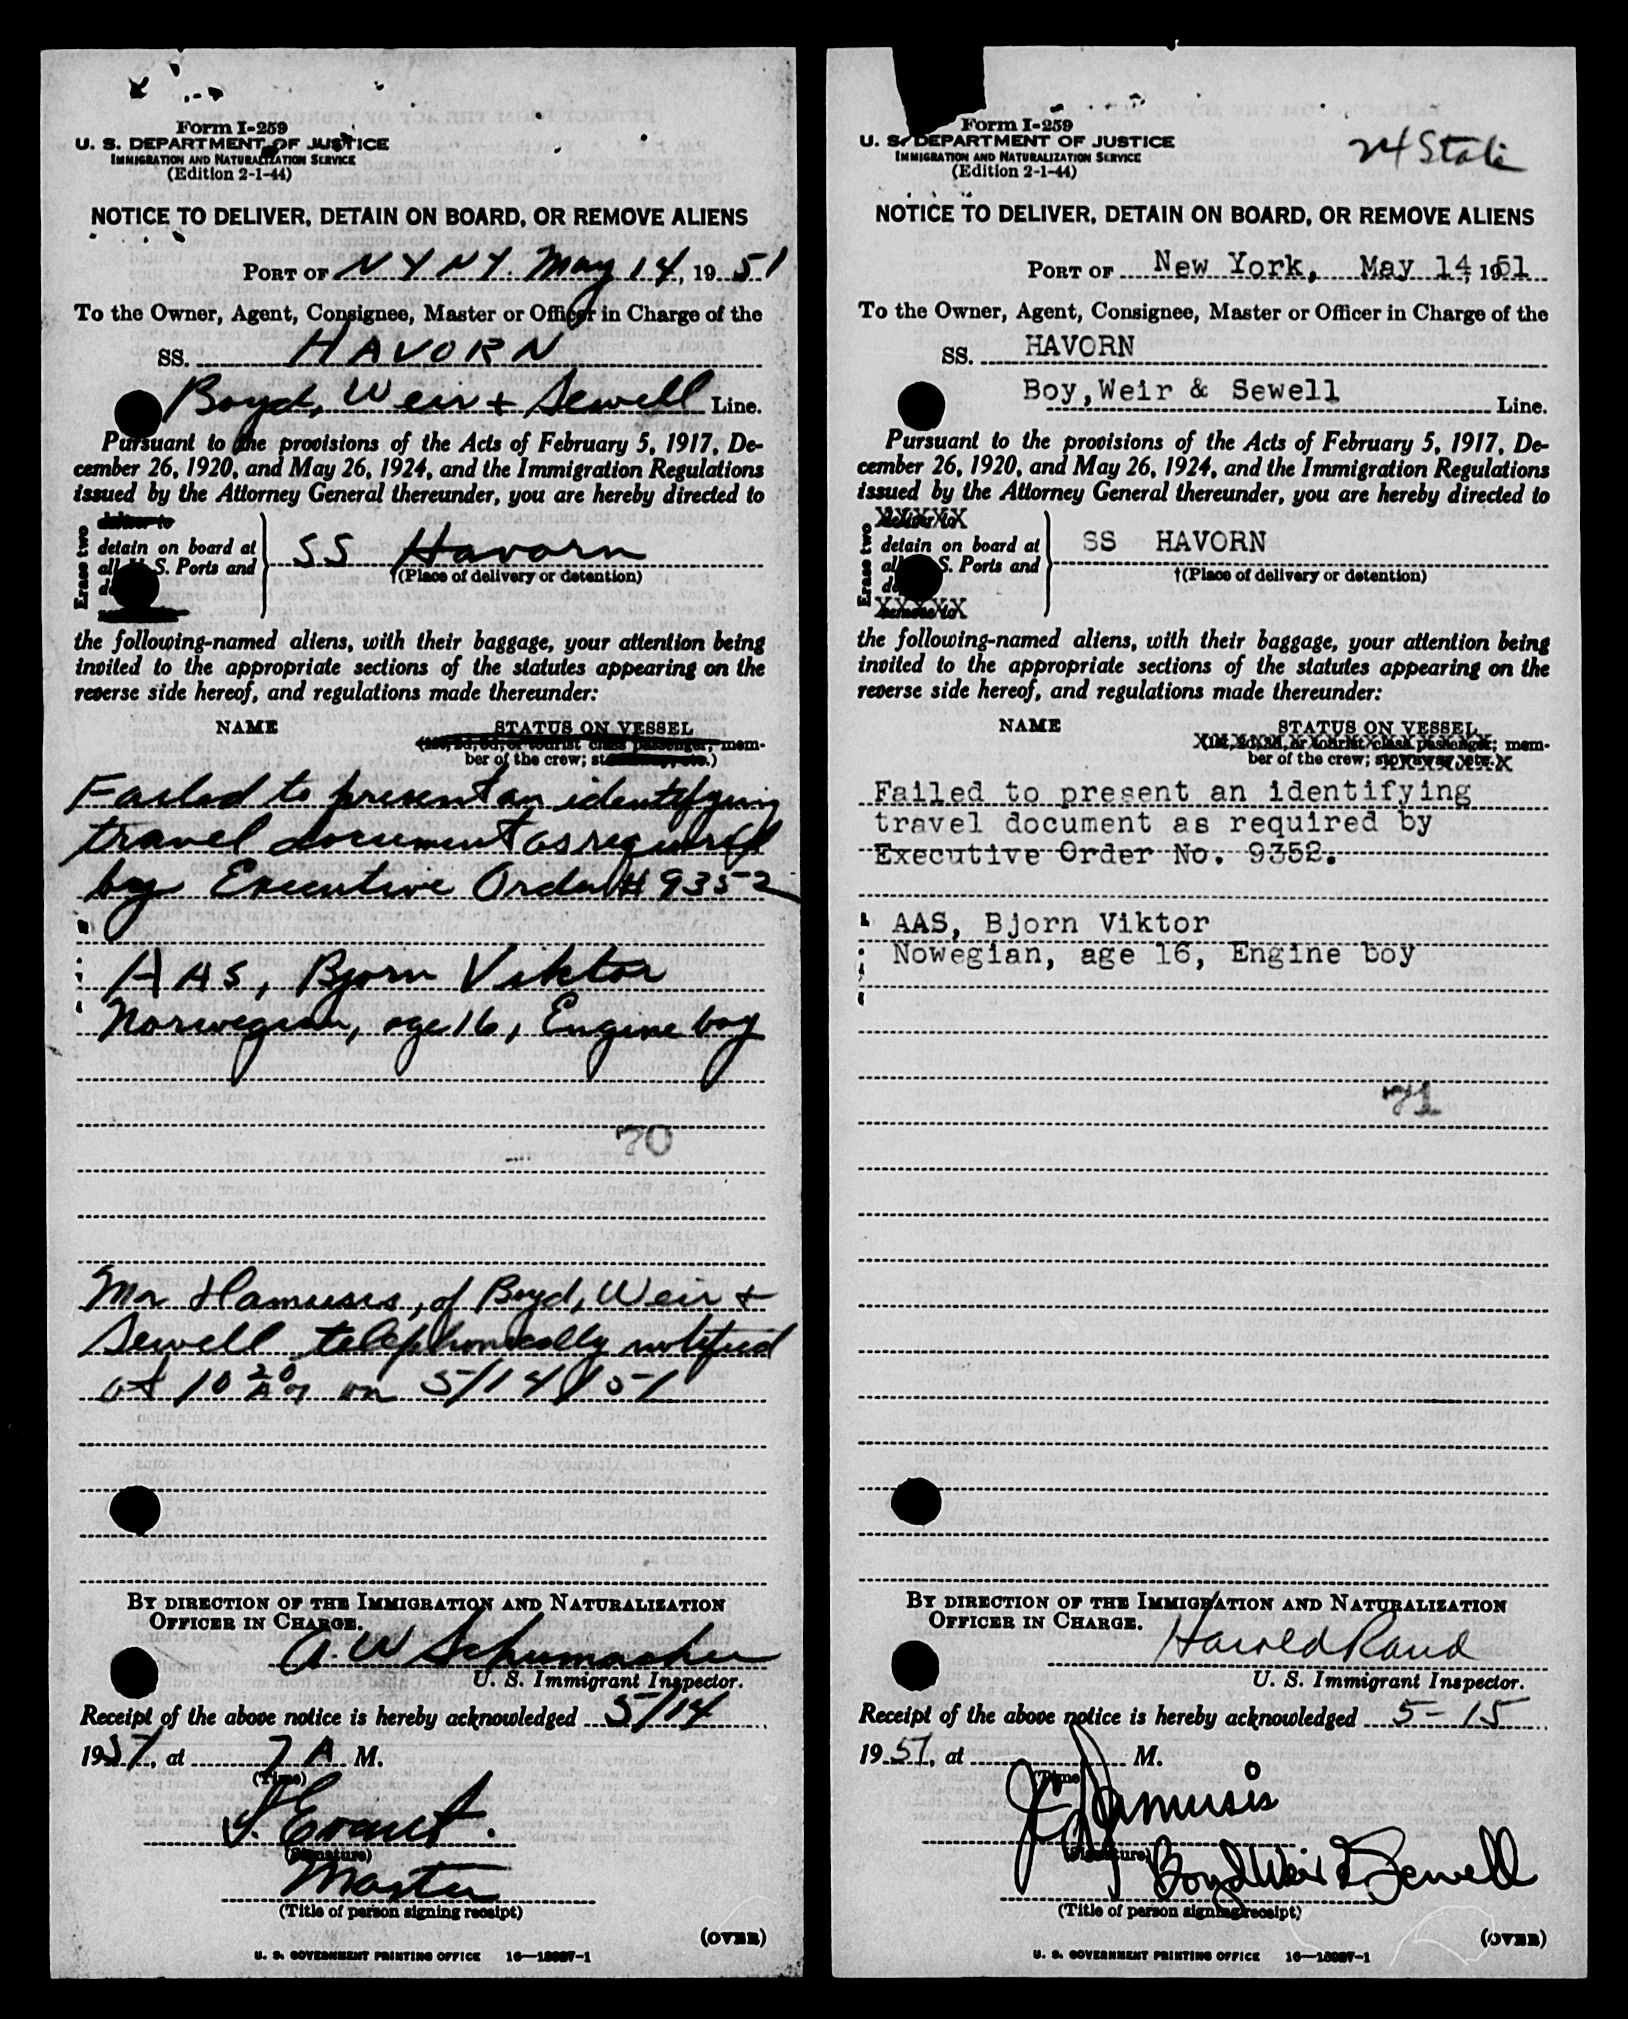 Form I-259
U. S. DEPARTMENT OF JUSTICE
IMMIGRATION AND NATURALIZATION SERVICE
(Edition 2-1-44)
NOTICE TO DELIVER, DETAIN ON BOARD, OR REMOVE ALIENS
PORT OF N Y N Y. May 14, 1951
To the Owner, Agent, Consignee, Master or Officer in Charge of the
SS. HAVORN
Boyd, Weir + Sewell Line.
Pursuant to the provisions of the Acts of February 5, 1917, De-
cember 26, 1920, and May 26, 1924, and the Immigration Regulations
issued by the Attorney General thereunder, you are hereby directed to
Erase two
deliver to
detain on board at
all U. S. Ports and
SS Havorn
†(Place of delivery or detention)
the following-named aliens, with their baggage, your attention being
invited to the appropriate sections of the statutes appearing on the
reverse side hereof, and regulations made thereunder:
NAME STATUS ON VESSEL
(1st, 2d, 3d, or tourist class passenger; mem-
ber of the crew;
Failed to present an identifying
travel document as required
by Executive Order # 9352
AAS, Bjorn Viktor
Norwegian, age 16, Engine boy
70
Mr Hamusis, of Boyd, Weir +
Sewell telephonically notified
at 10 20 AM on 5/14/51
BY DIRECTION OF THE IMMIGRATION AND NATURALIZATION
OFFICER IN CHARGE.
A. W Schumacher
U. S. Immigrant Inspector.
Receipt of the above notice is hereby acknowledged 5/14
1951, at 7 A M.
(Time)
(Signature)
Master
(Title of person signing receipt)
(OVER)
U. S. GOVERNMENT PRINTING OFFICE 16—18987-1
Form I-259
U. S. DEPARTMENT OF JUSTICE
IMMIGRATION AND NATURALIZATION SERVICE
(Edition 2-1-44)
24 State
NOTICE TO DELIVER, DETAIN ON BOARD, OR REMOVE ALIENS
PORT OF New York, May 14, 1951
To the Owner, Agent, Consignee, Master or Officer in Charge of the
SS. HAVORN
Boy,Weir & Sewell Line.
Pursuant to the provisions of the Acts of February 5, 1917, De-
cember 26, 1920, and May 26, 1924, and the Immigration Regulations
issued by the Attorney General thereunder, you are hereby directed to
Erase two
deliver to
detain on board at
all U. S. Ports and
remove to
SS HAVORN
†(Place of delivery or detention)
the following-named aliens, with their baggage, your attention being
invited to the appropriate sections of the statutes appearing on the
reverse side hereof, and regulations made thereunder:
NAME STATUS ON VESSEL
(1st, 2d, 3d, or tourist class passenger; mem-
ber of the crew; stowaway, etc.)
Failed to present an identifying
travel document as required by
Executive Order No. 9352.
AAS, Bjorn Viktor
Nowegian, age 16, Engine boy
71
BY DIRECTION OF THE IMMIGRATION AND NATURALIZATION
OFFICER IN CHARGE.
Harold Rand
U. S. Immigrant Inspector.
Receipt of the above notice is hereby acknowledged 5-15
1951, at M.
(Time)
Hamusis
(Signature)
Boyd Weir & Sewell
(Title of person signing receipt)
(OVER)
U. S. GOVERNMENT PRINTING OFFICE 16—18987-1